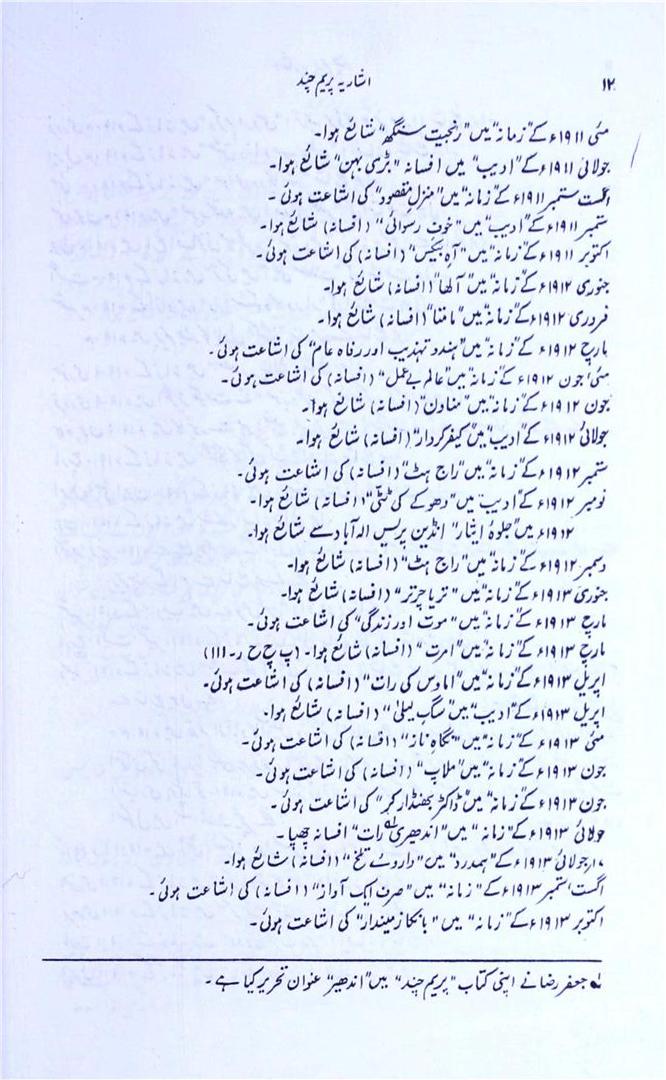 ۱۲
اشاریہ پریم چند
مئی ۱۹۱۱ء کے "زمانہ" میں "رنجیت سنگھ" شائع ہوا۔
جولائی ۱۹۱۱ء کے "ادیب" میں افسانہ "بڑی بہن" شائع ہوا۔
اگست ستمبر ۱۹۱۱ء کے "زمانہ" میں "منزل مقصود" کی اشاعت ہوئی۔
ستمبر ۱۹۱۱ء کے "ادیب" میں "خوف رسوائی" (افسانہ) شائع ہوا۔
اکتوبر ۱۹۱۱ء کے "زمانہ" میں "آہ بیکس" (افسانہ) کی اشاعت ہوئی۔
جنوری ۱۹۱۲ء کے "زمانہ" میں "آلھا" (افسانہ) شائع ہوا۔
فروری ۱۹۱۲ء کے "زمانہ" میں "مامتا" (افسانہ) شائع ہوا۔
مارچ ۱۹۱۲ء کے "زمانہ" میں "ہندو تہذیب اور رفاہ عام" کی اشاعت ہوئی۔
مئی، جون ۱۹۱۲ء کے "زمانہ" میں "عالم بے عمل" (افسانہ) کی اشاعت ہوئی۔
جون ۱۹۱۲ء کے "زمانہ" میں "مناون" (افسانہ) شائع ہوا۔
جولائی ۱۹۱۲ء کے "ادیب" میں "کیفر کردار" (افسانہ) شائع ہوا۔
ستمبر ۱۹۱۲ء کے "زمانہ" میں "راج ہٹ" (افسانہ) کی اشاعت ہوئی۔
نومبر ۱۹۱۲ء کے "ادیب" میں "دھوکے کی ٹٹی" (افسانہ) کی اشاعت ہوئی۔
۱۹۱۲ء میں "جلوۂ ایثار" انڈین پریس الہ آباد سے شائع ہوا۔
دسمبر ۱۹۱۲ء کے "زمانہ" میں "راج ہٹ" (افسانہ) شائع ہوا۔
جنوری ۱۹۱۳ء کے "زمانہ" میں "تریا چرتر" (افسانہ) شائع ہوا۔
مارچ ۱۹۱۳ء کے "زمانہ" میں "موت اور زندگی" کی اشاعت ہوئی۔
مارچ ۱۹۱۳ء کے "زمانہ" میں "امرت" (افسانہ) شائع ہوا۔ (پ چ ح ر۔ ۱۱۱)
اپریل ۱۹۱۳ء کے "زمانہ" میں "اماوس کی رات" (افسانہ) کی اشاعت ہوئی۔
اپریل ۱۹۱۳ء کے "ادیب" میں "سگ لیلیٰ" (افسانہ) شائع ہوا۔
مئی ۱۹۱۳ء کے "زمانہ" میں "نگاہ ناز" (افسانہ) کی اشاعت ہوئی۔
جون ۱۹۱۳ء کے "زمانہ" میں "ملاپ" (افسانہ) کی اشاعت ہوئی۔
جون ۱۹۱۳ء کے "زمانہ" میں "ڈاکٹر بھنڈارکر" کی اشاعت ہوئی۔
جولائی ۱۹۱۳ء کے "زمانہ" میں "اندھیری رات" افسانہ چھپا۔
۱۷ جولائی ۱۹۱۳ء کے "ہمدرد" میں "داروئے تلخ" (افسانہ) شائع ہوا۔
اگست، ستمبر ۱۹۱۳ء کے "زمانہ" میں "صرف ایک آواز" (افسانہ) کی اشاعت ہوئی۔
اکتوبر ۱۹۱۳ء کے "زمانہ" میں "بانکا زمیندار" کی اشاعت ہوئی۔
جعفر رضا نے اپنی کتاب "پریم چند" میں "اندھیر" عنوان تحریر کیا ہے۔